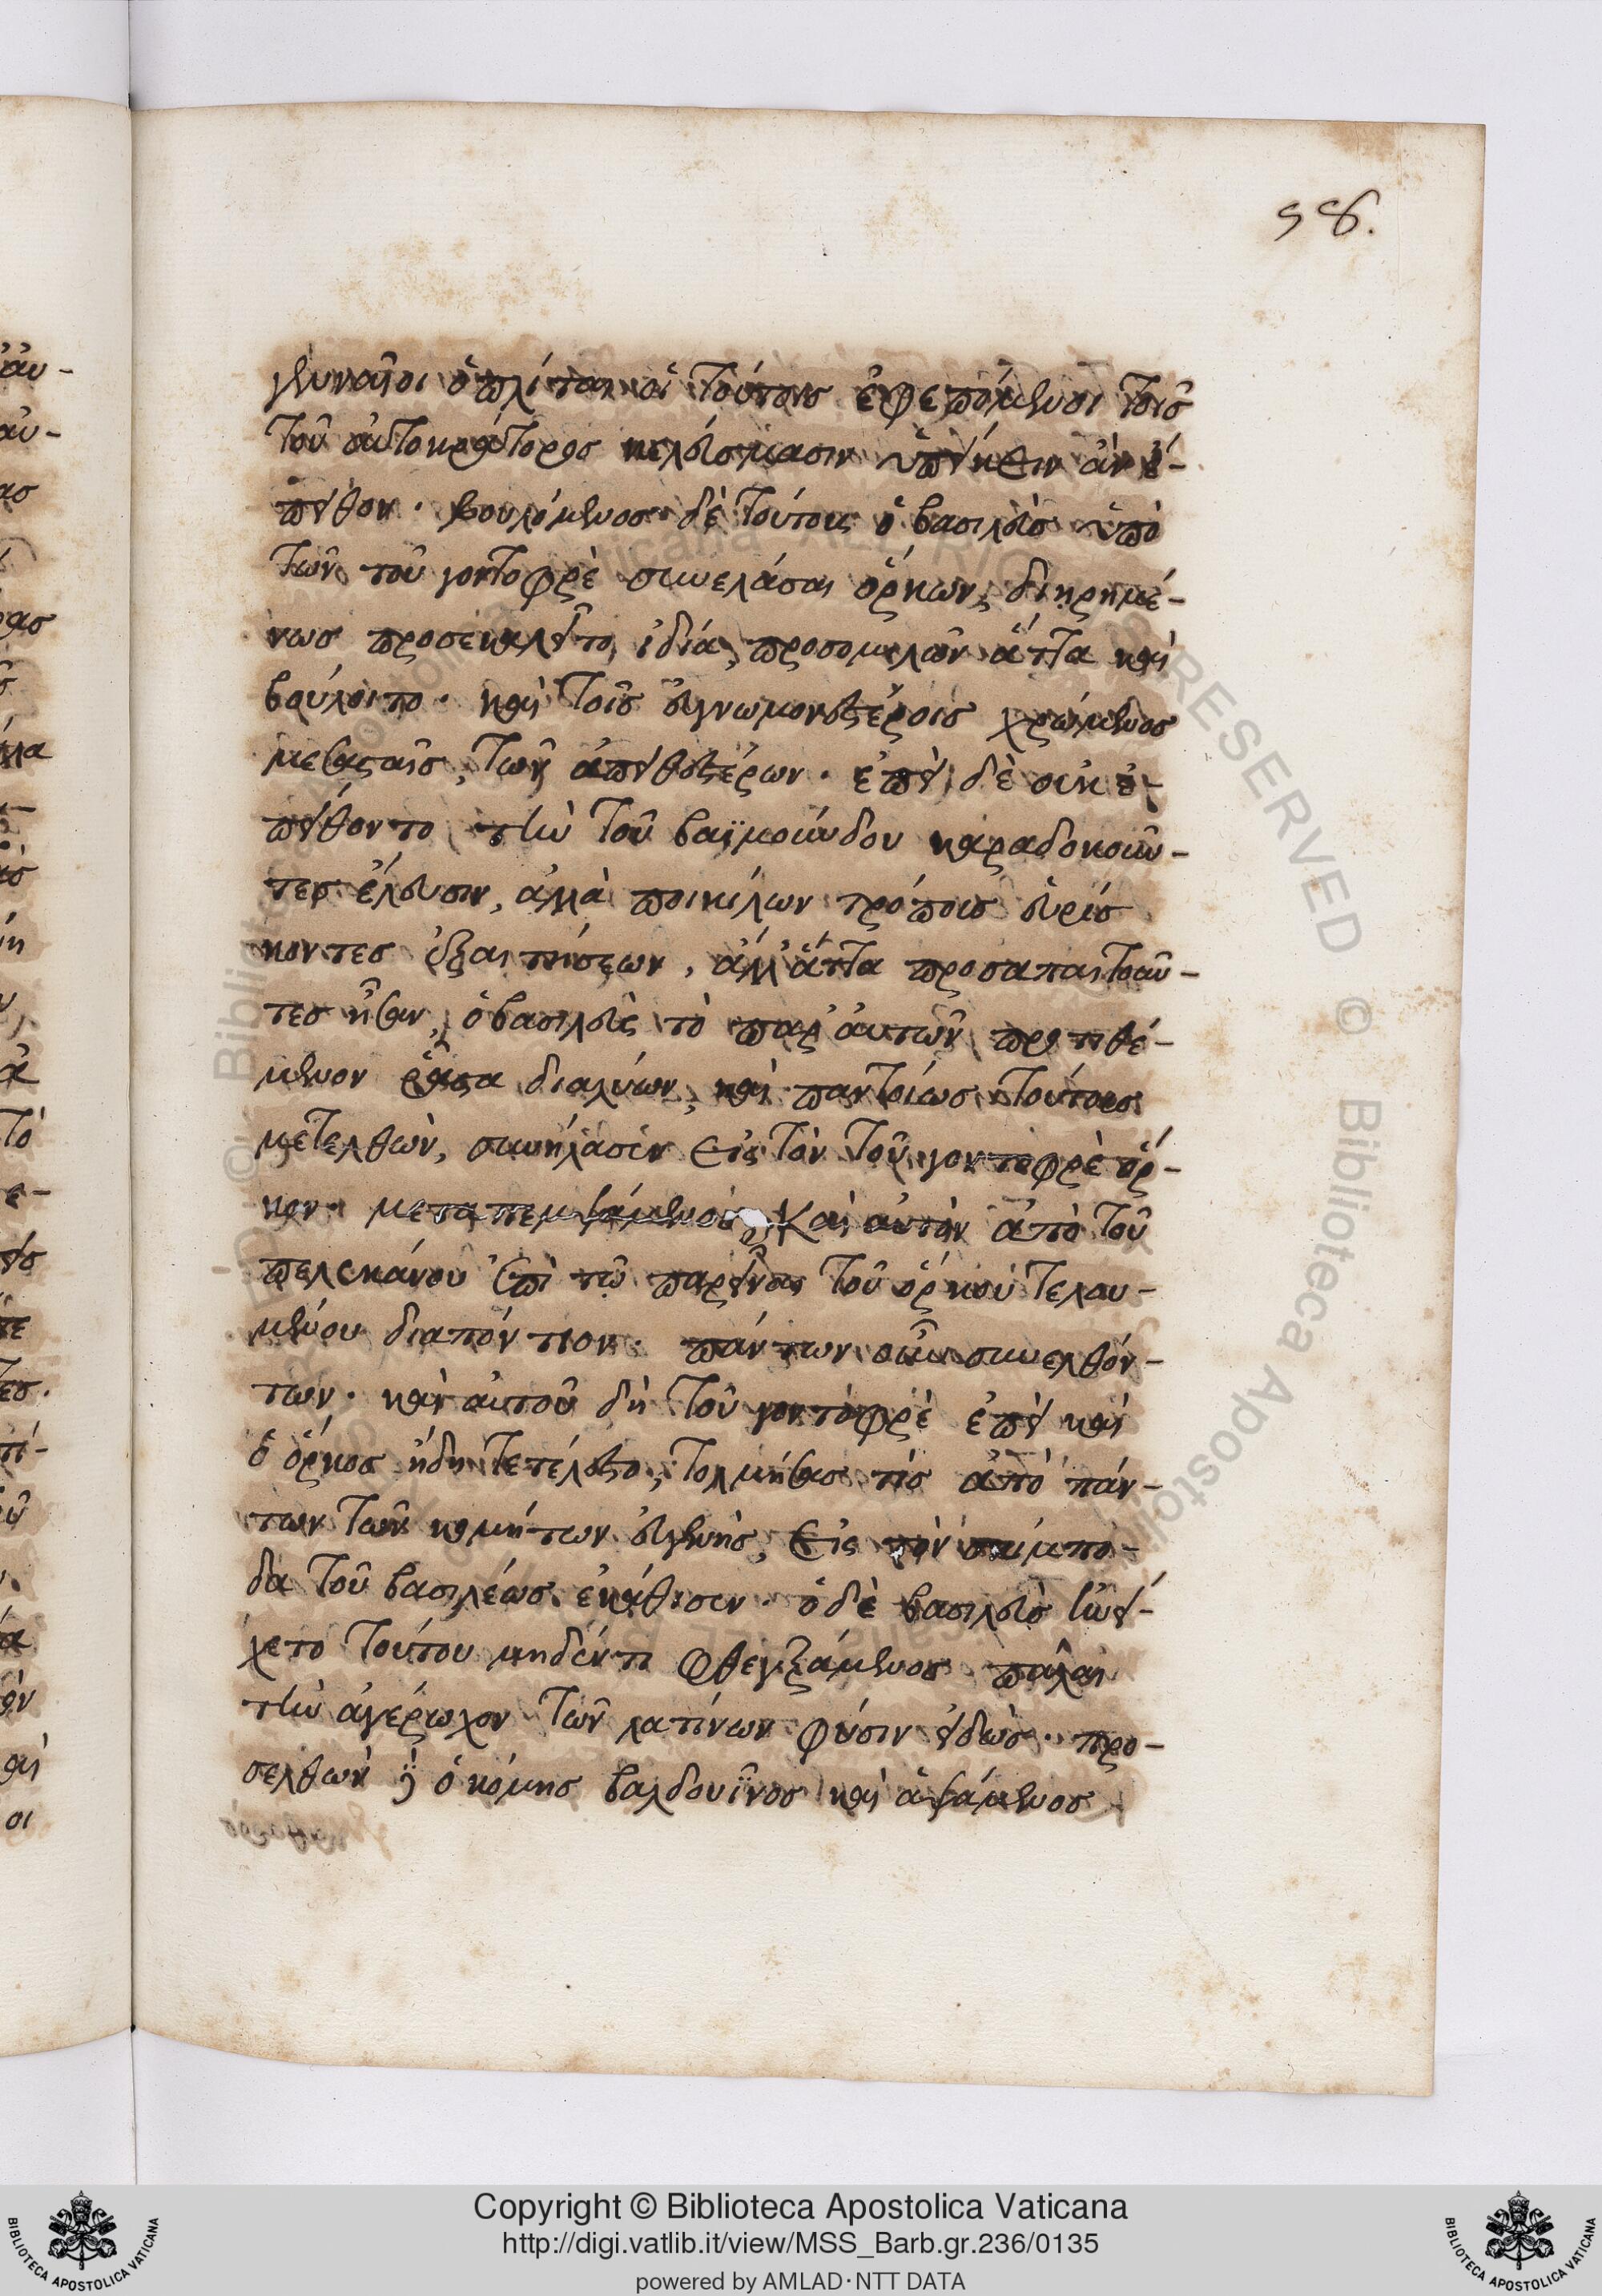 58.
γενναῖοι ὁπλίται οἱ τούτοις ἐφεπόμενοι τοῖς
τοῦ αὐτοκράτορος κελεύσμασιν ὑπείκειν ἀν έ-
πειθον. βουλόμενος δὲ τούτους ὁ βασιλεὺς ὑπὸ
τῶν τοῦ γοντοφρὲ συνελάσαι ὅρκων, διῃρημέ-
νως προσεκαλεῖτο, ἰδίᾳ, προσομιλῶν ἅττα καὶ
βούλοιτο. καὶ τοῖς εὐγνωμονεστέροις χρώμενος
μεσίταις, τῶν ἀπειθεστέρων. ἐπεὶ δὲ οὐκ ἐ-
πείθοντο τὴν τοῦ βαϊμούνδου καραδοκοῦν-
τες ἔλευσιν, ἀλλὰ ποικίλων τρόποις εὑρίσ
κοντες ἐξαιτήσεων, ἀλλ' ἅττα προσαπαιτοῦν-
τες ἦσαν, ὁ βασιλεὺς τὸ παρ' αὐτῶν προτιθέ-
μενον ῥᾷστα διαλύων, καὶ παντοίως τούτους
μετελθὼν, συνήλασεν εἰς τὸν τοῦ γοντοφρὲ ὅρ-
κον. μεταπεμψάμενος καὶ αὐτὸν ἀπὸ τοῦ
πελεκάνου ἐπὶ τῷ παρεῖναι τοῦ ὅρκου τελου-
μένου διαπόντιον. πάντων οὖν συνελθόν-
των. καὶ αὐτοῦ δὴ τοῦ γοντοφρὲ ἐπεὶ καὶ
ὁ ὅρκος ἤδη τετέλεστο, τολμήσας τίς ἀπὸ πάν-
των τῶν κομήτων εὐγενὴς, εἰς τὸν σκίμπο-
δα τοῦ βασιλέως ἐκάθισεν. ὁ δὲ βασιλεὺς ἠνεί-
χετο τούτου μηδέν τι φθεγξάμενος πάλαι
τὴν ἀγέρωχον τῶν λατίνων φύσιν εἰδὼς. προ-
σελθὼν δὲ ὁ κόμης βαλδουῖνος καὶ ἁψάμενος
Copyright © Biblioteca Apostolica Vaticana
http://digi.vatlib.it/view/MSS_Barb.gr.236/0135
powered by AMLAD·NTT DATA